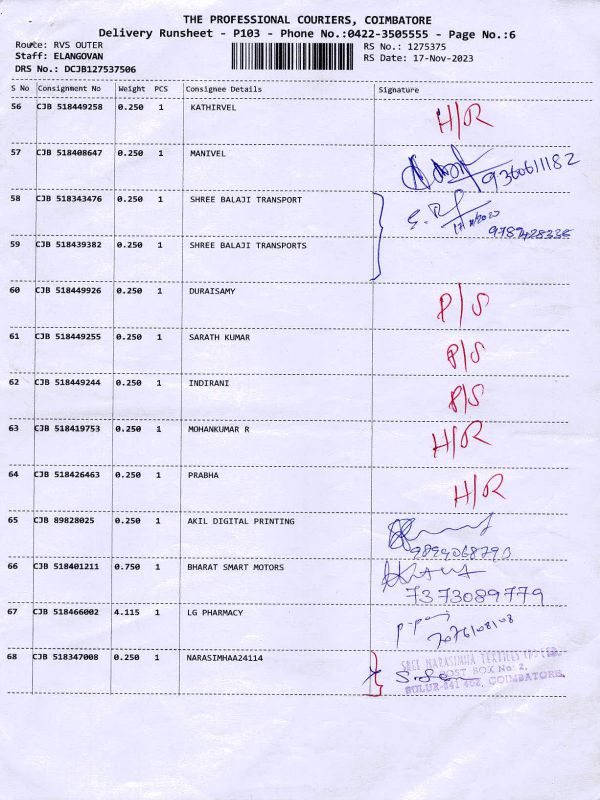 THE PROFESSIONAL COURIERS, COIMBATORE
Delivery Runsheet - P103 - Phone No.:0422-3505555 - Page No.:6
Route: RVS OUTER
RS No.: 1275375
Staff: ELANGOVAN
RS Date: 17-Nov-2023
DRS No.: DCJB127537506
S No Consignment No Weight PCS Consignee Details Signature
56 CJB 518449258 0.250 1 KATHIRVEL H/R
57 CJB 518408647 0.250 1 MANIVEL 9360611182
58 CJB 518343476 0.250 1 SHREE BALAJI TRANSPORT
59 CJB 518439382 0.250 1 SHREE BALAJI TRANSPORTS
60 CJB 518449926 0.250 1 DURAISAMY P/S
61 CJB 518449255 0.250 1 SARATH KUMAR P/S
62 CJB 518449244 0.250 1 INDIRANI P/S
63 CJB 518419753 0.250 1 MOHANKUMAR R H/R
64 CJB 518426463 0.250 1 PRABHA H/R
65 CJB 89828025 0.250 1 AKIL DIGITAL PRINTING
66 CJB 518401211 0.750 1 BHARAT SMART MOTORS
7373089779
67 CJB 518466002 4.115 1 LG PHARMACY
68 CJB 518347008 0.250 1 NARASIMHAA24114
SREE NARASIMHA TEXTILES (P) LTD.
POST BOX No: 2,
SULUR-641 402, COIMBATORE.